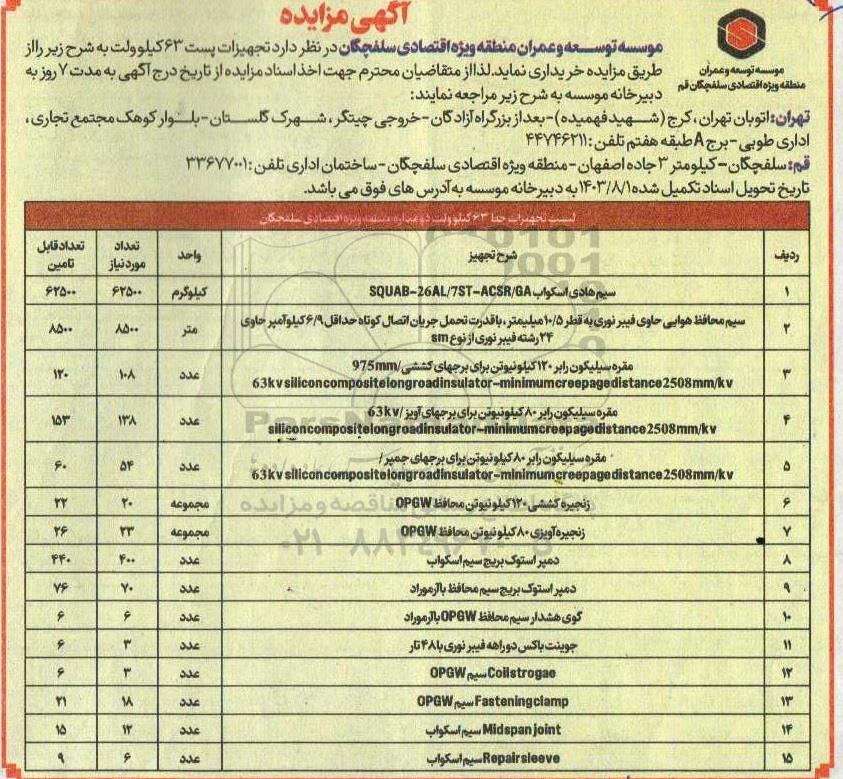 آگهی مزایده
موسسه توسعه و عمران
منطقه ویژه اقتصادی سلفچگان قم
موسسه توسعه و عمران منطقه ویژه اقتصادی سلفچگان در نظر دارد تجهیزات پست ۶۳ کیلو ولت به شرح زیر را از
طریق مزایده خریداری نماید. لذا از متقاضیان محترم جهت اخذ اسناد مزایده از تاریخ درج آگهی به مدت ۷ روز به
دبیرخانه موسسه به شرح زیر مراجعه نمایند:
تهران: اتوبان تهران، کرج (شهید فهمیده) - بعد از بزرگراه آزادگان - خروجی چیتگر، شهرک گلستان - بلوار کوهک مجتمع تجاری،
اداری طوبی - برج A طبقه هفتم تلفن: ۴۴۷۴۶۲۱۱
قم: سلفچگان - کیلومتر ۳ جاده اصفهان - منطقه ویژه اقتصادی سلفچگان - ساختمان اداری تلفن: ۳۳۶۷۷۰۰۱
تاریخ تحویل اسناد تکمیل شده ۱۴۰۳/۸/۱ به دبیرخانه موسسه به آدرس های فوق می باشد.
لیست تجهیزات خط ۶۳ کیلو ولت دو مداره منطقه ویژه اقتصادی سلفچگان
ردیف شرح تجهیز واحد تعداد مورد نیاز تعداد قابل تامین
۱ سیم هادی اسکواب SQUAB-26AL/7ST-ACSR/GA کیلوگرم ۶۲۵۰۰ ۶۲۵۰۰
۲ سیم محافظ هوایی حاوی فیبر نوری به قطر ۱۰/۵ میلیمتر، با قدرت تحمل جریان اتصال کوتاه حداقل ۶/۹ کیلو آمپر حاوی
۲۴ رشته فیبر نوری از نوع sm متر ۸۵۰۰ ۸۵۰۰
۳ مقره سیلیکون رابر ۱۲۰ کیلو نیوتن برای برجهای کششی/975mm
63kv siliconcompositelongroadinsulator-minimumcreepagedistance2508mm/kv عدد ۱۰۸ ۱۲۰
۴ مقره سیلیکون رابر ۸۰ کیلو نیوتن برای برجهای آویز/63kv
siliconcompositelongroadinsulator-minimumcreepagedistance2508mm/kv عدد ۱۳۸ ۱۵۳
۵ مقره سیلیکون رابر ۸۰ کیلو نیوتن برای برجهای جمپر/
63kv siliconcompositelongroadinsulator-minimumcreepagedistance2508mm/kv عدد ۵۴ ۶۰
۶ زنجیره کششی ۱۲۰ کیلو نیوتن محافظ OPGW مجموعه ۲۰ ۲۲
۷ زنجیره آویزی ۸۰ کیلو نیوتن محافظ OPGW مجموعه ۲۳ ۲۶
۸ دمپر استوک بریج سیم اسکواب عدد ۴۰۰ ۴۴۰
۹ دمپر استوک بریج سیم محافظ با آرموراد عدد ۷۰ ۷۶
۱۰ گوی هشدار سیم محافظ OPGW با آرموراد عدد ۶ ۶
۱۱ جوینت باکس دو راهه فیبر نوری با ۴۸ تار عدد ۳ ۶
۱۲ Coilstrogae سیم OPGW عدد ۳ ۶
۱۳ Fasteningclamp سیم OPGW عدد ۱۸ ۲۱
۱۴ Midspanjoint سیم اسکواب عدد ۱۲ ۱۵
۱۵ Repairsleeve سیم اسکواب عدد ۶ ۹